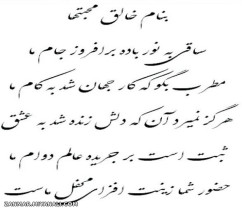 بنام خالق محبتها
ساقی به نور باده برافروز جام ما
مطرب بگو که کار جهان شد به کام ما
هرگز نمیرد آن که دلش زنده شد به عشق
ثبت است بر جریده عالم دوام ما
حضور شما زینت افزای محفل ماست